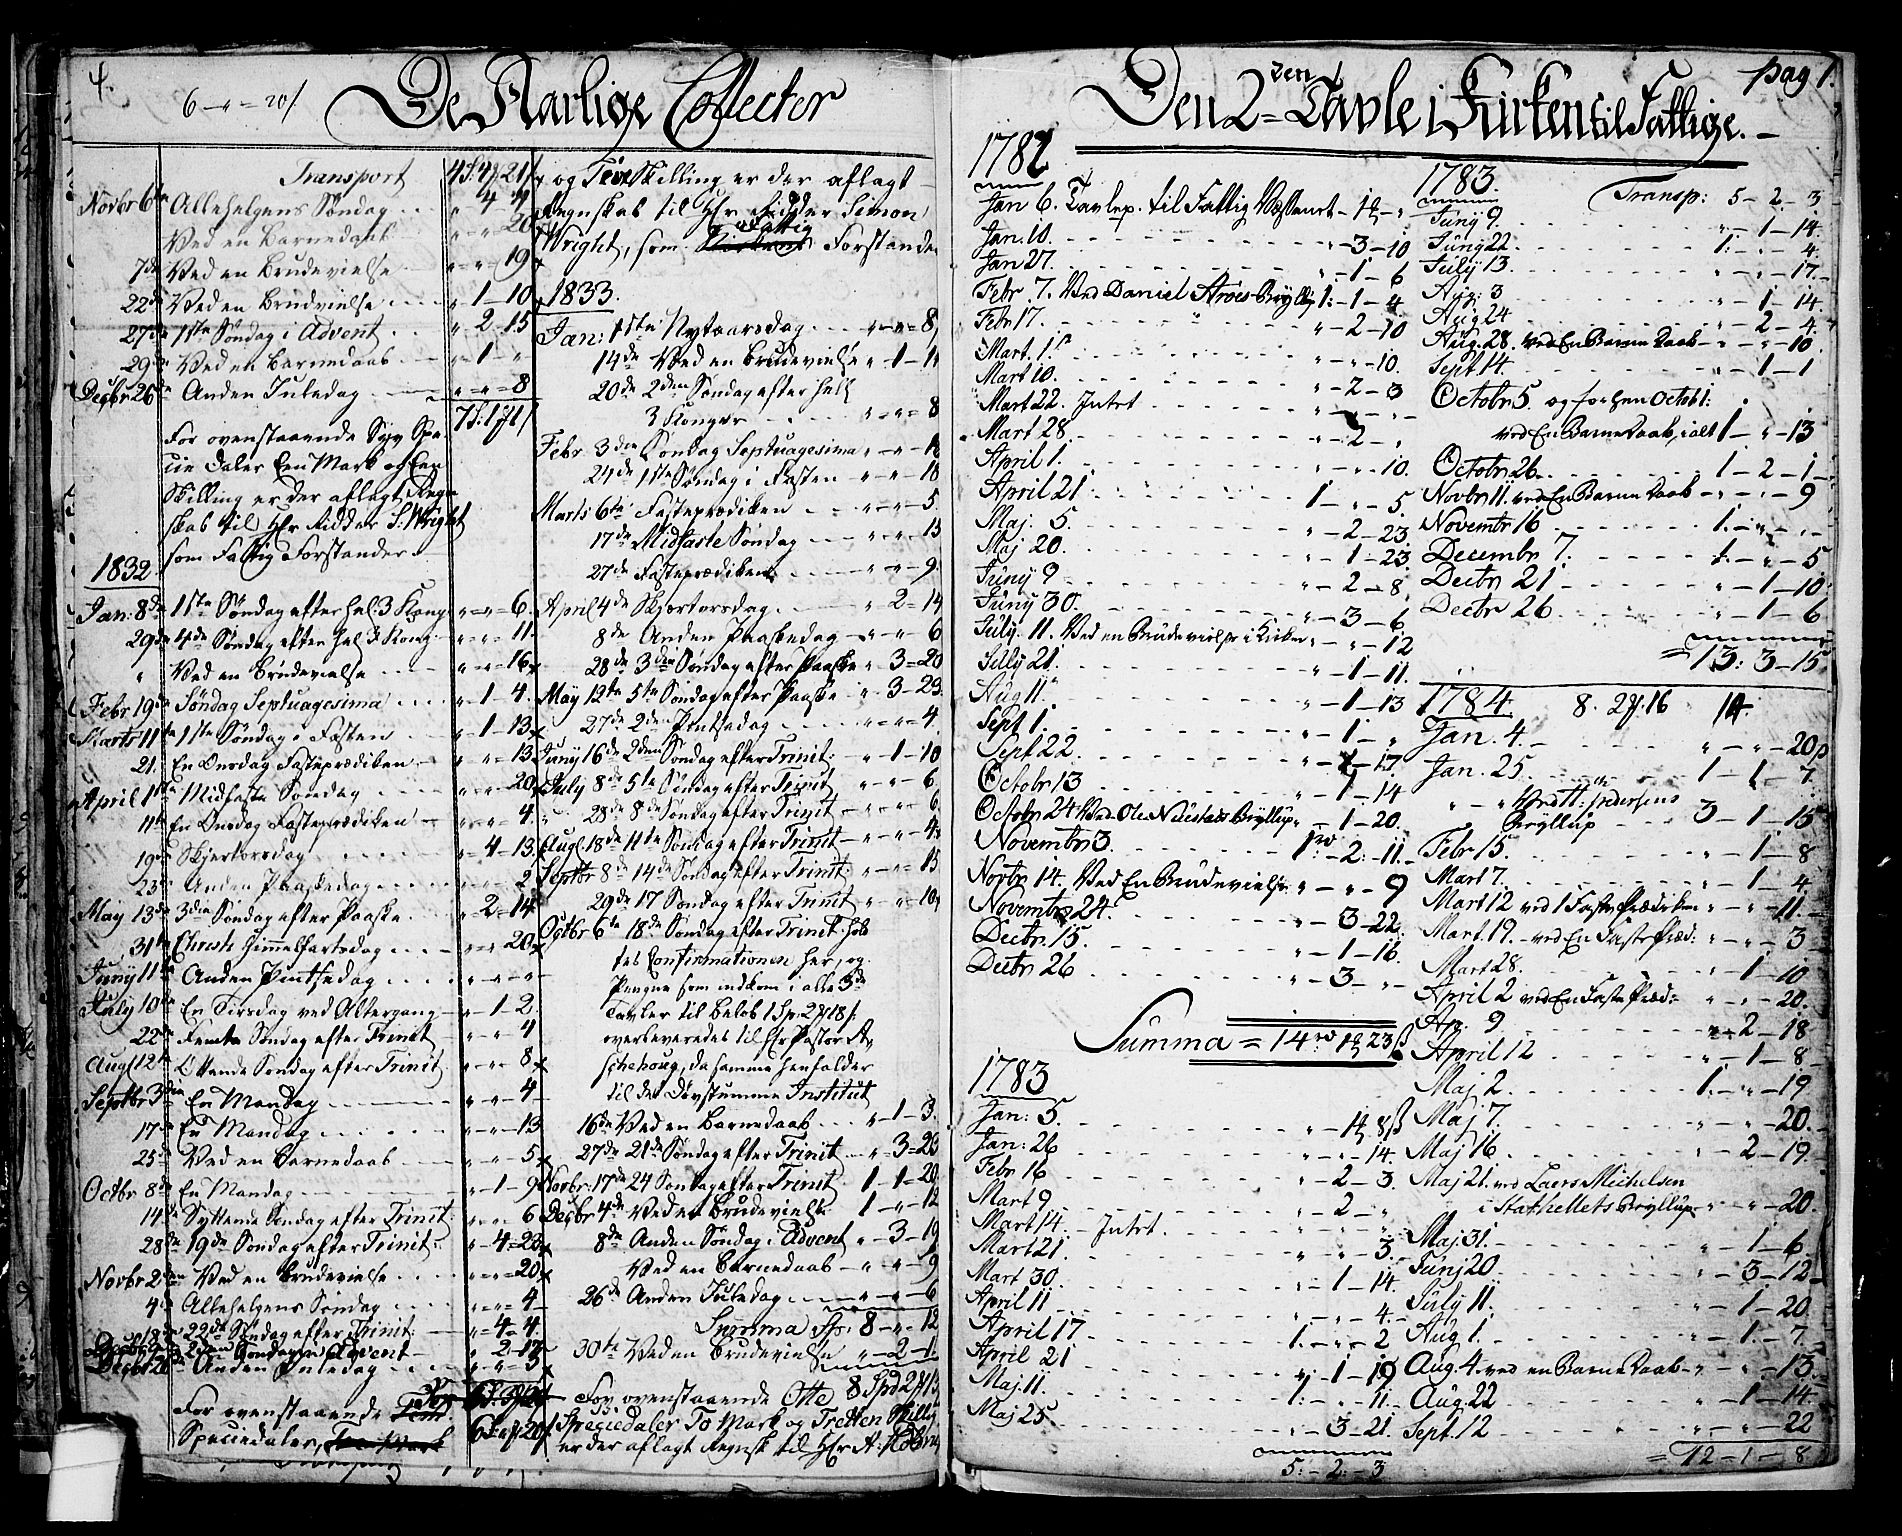 4.
6 – „ = 20/
De Aarlige Collecter
Transport 4S: 4 21/
Novbr 6te Allehelgens Søndag . . „ 4 4
Ved en Barnedaab „ „ 20
7de Ved en Brudevielse „ „ 19
22de Ved en Brudvielse „ 1 – 10
27de 1ste Søndag i Advent „ 2 – 15
29de Ved en Barnedaab „ 1 – „
Decbr 26de Anden Juledag „ „ = 8
7S: 1 1/
For ovenstaaende Syv Spe-
cie Daler Een Mark og Een
Skilling er der aflagt Regn-
skab til Hr Ridder S: Wright
som Fattig Forstander
1832
Jan: 8de 1ste Søndag efter Hel: 3 Kong „ = „ = 6.
29de 4de Søndag efter Hel 3 Kong „ = „ = 11.
„ Ved en Brudevielse „ = „ = 16
Febr 19de Søndag Septuagesima „ 1 – 4.
Marts 11te 1ste Søndag i Fasten „ 1 – 13
21. En Onsdag Fasteprædiken „ „ = 13
April 1ste Midfaste Søndag „ „ – 20
11te En Onsdag Fasteprædiken „ „ = 4
19de Skjertorsdag „ 4 – 13.
23de Anden Paaskedag „ „ – 2
May 13de 3die Søndag efter Paaske „ 2 = 14
31te Christi Himmelfartsdag „ „ = 20
Juny 11te Anden Pintsedag „ „ = „
July 10de En Tirsdag ved Altergang „ 1 2.
22de Femte Søndag efter Trinit „ „ 4
Aug 12te Ottende Søndag efter Trinit: „ „ 8
Septbr 3die En Mandag „ „ 4
17de En Mandag „ „ 13
25de Ved en Barnedaab „ „ 5
Octbr 8de En Mandag „ 1 – 9
14de Syttende Søndag efter Trinit: „ „ 6
28de 19de Søndag efter Trinit: „ 4 = 23
Novbr 2den Ved en Brudevielse „ = 20
4de Allehelgens Søndag „ „ = 4
18de 22de Søndag efter Trinit: „ 4 = 4.
2den Søndag i Advent „ 2 – 17
Decbr 26de Anden Juledag „ „ = 3
For ovenstaaende
Speciedaler, 6S: „ 20/
og Tive Skilling er der aflagt
Regnskab til Hr Ridder Simon
Fattig
Wright, som Kirkens Forstander
1833.
Jan: 1ste Nytaarsdag „ = „ = 8,
14de Ved en Brudevielse „ 1 – 1
20de 2den Søndag efter Hell
3 Konger „ „ = 8
Febr. 3die Søndag Septuagesima „ „ – 18
24de 1ste Søndag i Fasten „ – „ – 18
Marts 6te Fasteprædiken „ – „ – 5.
17de Midfaste Søndag „ „ – 15
27de Fasteprædiken „ „ – 9.
April 4de Skjertorsdag „ 2 = 14
8de Anden Paaskedag „ – „ 6
28de 3die Søndag efter Paaske „ 3 = 20
May 12te 5te Søndag efter Paaske „ 3 – 23.
27de 2den Pintsedag „ – „ – 4.
Juny 16de 2den Søndag efter Trinit: „ 1 – 10
July 8de 5te Søndag efter Trinit „ – „ 6
28de 8de Søndag efter Trinit „ – „ – 6.
Aug: 18de 11te Søndag efter Trinit „ – „ 4
Septbr 8de 14de Søndag efter Trinit: „ – „ = 15
29de 17 Søndag efter Trinit „ – „ 10
Octbr 6te 18de Søndag efter Trinit: hol-
tes Confirmationen her, og
Pengene som indkom i alle 3de
Tavler til Beløb 1 Sp: 2 18/.
overleveredes til Hr Pastor A-
schehoug, da samme henfalder
til det Døvstumme Institut
16de Ved en Barnedaab „ 1 – 3.
27de 21de Søndag efter Trinit „ 3 = 23
Novbr: 17de 24 Søndag efter Trinit 1 – 1 – 20
Decbr 4de Ved en Brudevielse 1 „ – 12
8de Anden Søndag i Advent „ 3 – 19
Ved en Barnedaab „ – „ 9
26de Anden Juledag „ – „ – 6
Summa Sp: 8 – „ 12
30te Ved en Brudevielse „ – 2 – 1
For ovenstaaende Otte 8 Spd 2 13
Speciedaler To Mark og Tretten Skilling
er der aflagt Regnsk til Hr
Den 2den Tavle i Kirken til Fattige. pag 1.
1782
Jan 6. Tavlep. til Fattig
Jan. 10. „ – 3 – 10
Jan 27. „ – 1 – 6
Febr 7. Ved Daniel Aroes Bryllp 1: – 1 – 4
Febr 17. „ – 2 – 10
Mart. 1. „ – „ – 10.
Mart 10. „ – 2 – 3
Mart 22. Intet „ – „ – „
Mart 28. „ – 2 – „
April 1. „ – „ – 10.
April 21 1 – „ – 5.
Maj. 5. „ – 2 – 23.
Maj 20. „ – 1 – 23.
Juny 9 „ – 2 – 8.
Juny 30. „ – 3 – 6.
July. 11. Ved en Brudevielse i Kirken „ – „ – 12
July 21. „ – 1 – 11.
Aug 11. „ – 1 – 13
Sept 1. „ – 1 – „
Sept 22 „ – 1 – 17
Octobr 13 „ – 1 – 14
Octobr 24 Ved Ole Bryllup „ – 1 – 20.
Novembr 3. 1 – 2: – 11.
Novbr 14. Ved En Brudevielse „ – „ – 9
Novembr 24. „ – 3 – 22.
Decbr. 15. „ – 1 – 16.
Decbr 26 „ – 3 – „
Summa = 14 1 23 ß
1783
Jan: 5. „ – 1 8 ß
Jan: 26 „ – „ – 14.
Febr 16 „ – 2 – 3.
Mart 9 „ – 2 – „
Mart 14. Intet. „ – „ – „
Mart 21. „ – „ – 3.
Mart 30 „ – 1 – 14.
April 11 „ – „ – 4.
April 17 1: – „ – 2
April 21 „ – 1 – 19
Maj. 11. 1: – „ – 11.
Maj 25. „ – 3 – 21.
5: – 2: – 3
1783.
Transp: 5 – 2. – 3
Juny 9 „ – 1 – 14.
Juny 22 1: – „ – 4.
July 13. „ – „ – 17.
Aug: 3 „ – 1 – 14.
Aug 24 „ – 2 – 4.
Aug. 28. ved En Barne Daab – „ – 10.
Sept 14. „ – 1 – 1
Octobr 5. og for hen Octob 1:
ved En Barne Daab, i alt 1 – „ – 13
Octobr 26. 1 – 2 – 1
Novbr 11. ved En Barne Daab „ – „ – 9
Novembr 16 1. – „ – „
Decembr 7. 1. – „ – 5
Decbr 21 „ – 1 – 10:
Decbr 26 „ – 1 – 6
= 13: 3 – 15
1784 8. 2. 16 14
Jan. 4. „ – „ – 20 ß
Jan. 25. 1 – 1 – 7.
„ – „ Ved H: Pedersens
Bryllup 3 – 1 – 15
Febr 15. „ – 1 – 8
Mart 7. „ – 1 – 4.
Mart 12 ved 1 Faste Prædiken „ – „ – 11.
Mart. 19. ved En Faste Præd: „ – „ – 3
Mart 28. „ – 1 – 10
April 2 ved En Faste Præd: „ – „ – 20.
Ap. 9 „ – 2 – 18
April 12 „ – 1 – 8
Maj 2. 1: – „ – 19
Maj 7. „ – „ – 20.
Maj 16 „ – 2 – 19.
Maj 21. ved Laers Michelsen
i Stathellets Bryllup „ – „ – 20.
Maj 31. „ – 1 – 6.
Junj 20 „ – 3 – 12
July 11. „ – 1 – 20.
Aug 1. „ – 1. – 7.
Aug. 4. ved en Barne Daab „ – „ – 13.
Aug. 22 „ – 1 – 14.
Sept. 12 „ – „ – 22
= 12 – 1 – 8